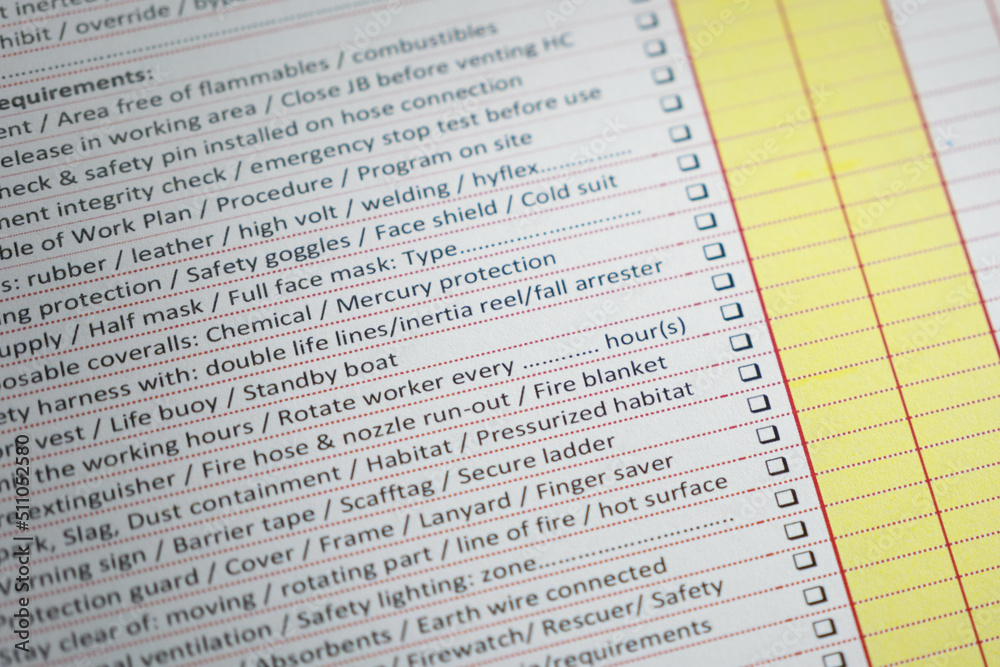 hibit / override / bypa
equirements:
ent / Area free of flammables / combustibles
elease in working area / Close JB before venting HC
heck & safety pin installed on hose connection
ment integrity check / emergency stop test before use
ble of Work Plan / Procedure / Program on site
s: rubber / leather / high volt / welding / hyflex...............
ng protection / Safety goggles / Face shield / Cold suit
upply / Half mask / Full face mask: Type..............................
posable coveralls: Chemical / Mercury protection
ety harness with: double life lines/inertia reel/fall arrester
ork vest / Life buoy / Standby boat
the working hours / Rotate worker every ............ hour(s)
extinguisher / Fire hose & nozzle run-out / Fire blanket
park, Slag, Dust containment / Habitat / Pressurized habitat
Warning sign / Barrier tape / Scafftag / Secure ladder
Protection guard / Cover / Frame / Lanyard / Finger saver
Stay clear of: moving / rotating part / line of fire / hot surface
nal ventilation / Safety lighting: zone..............................
/ Absorbents / Earth wire connected
Firewatch/ Rescuer/ Safety
s/requirements
Adobe Stock | #511052580